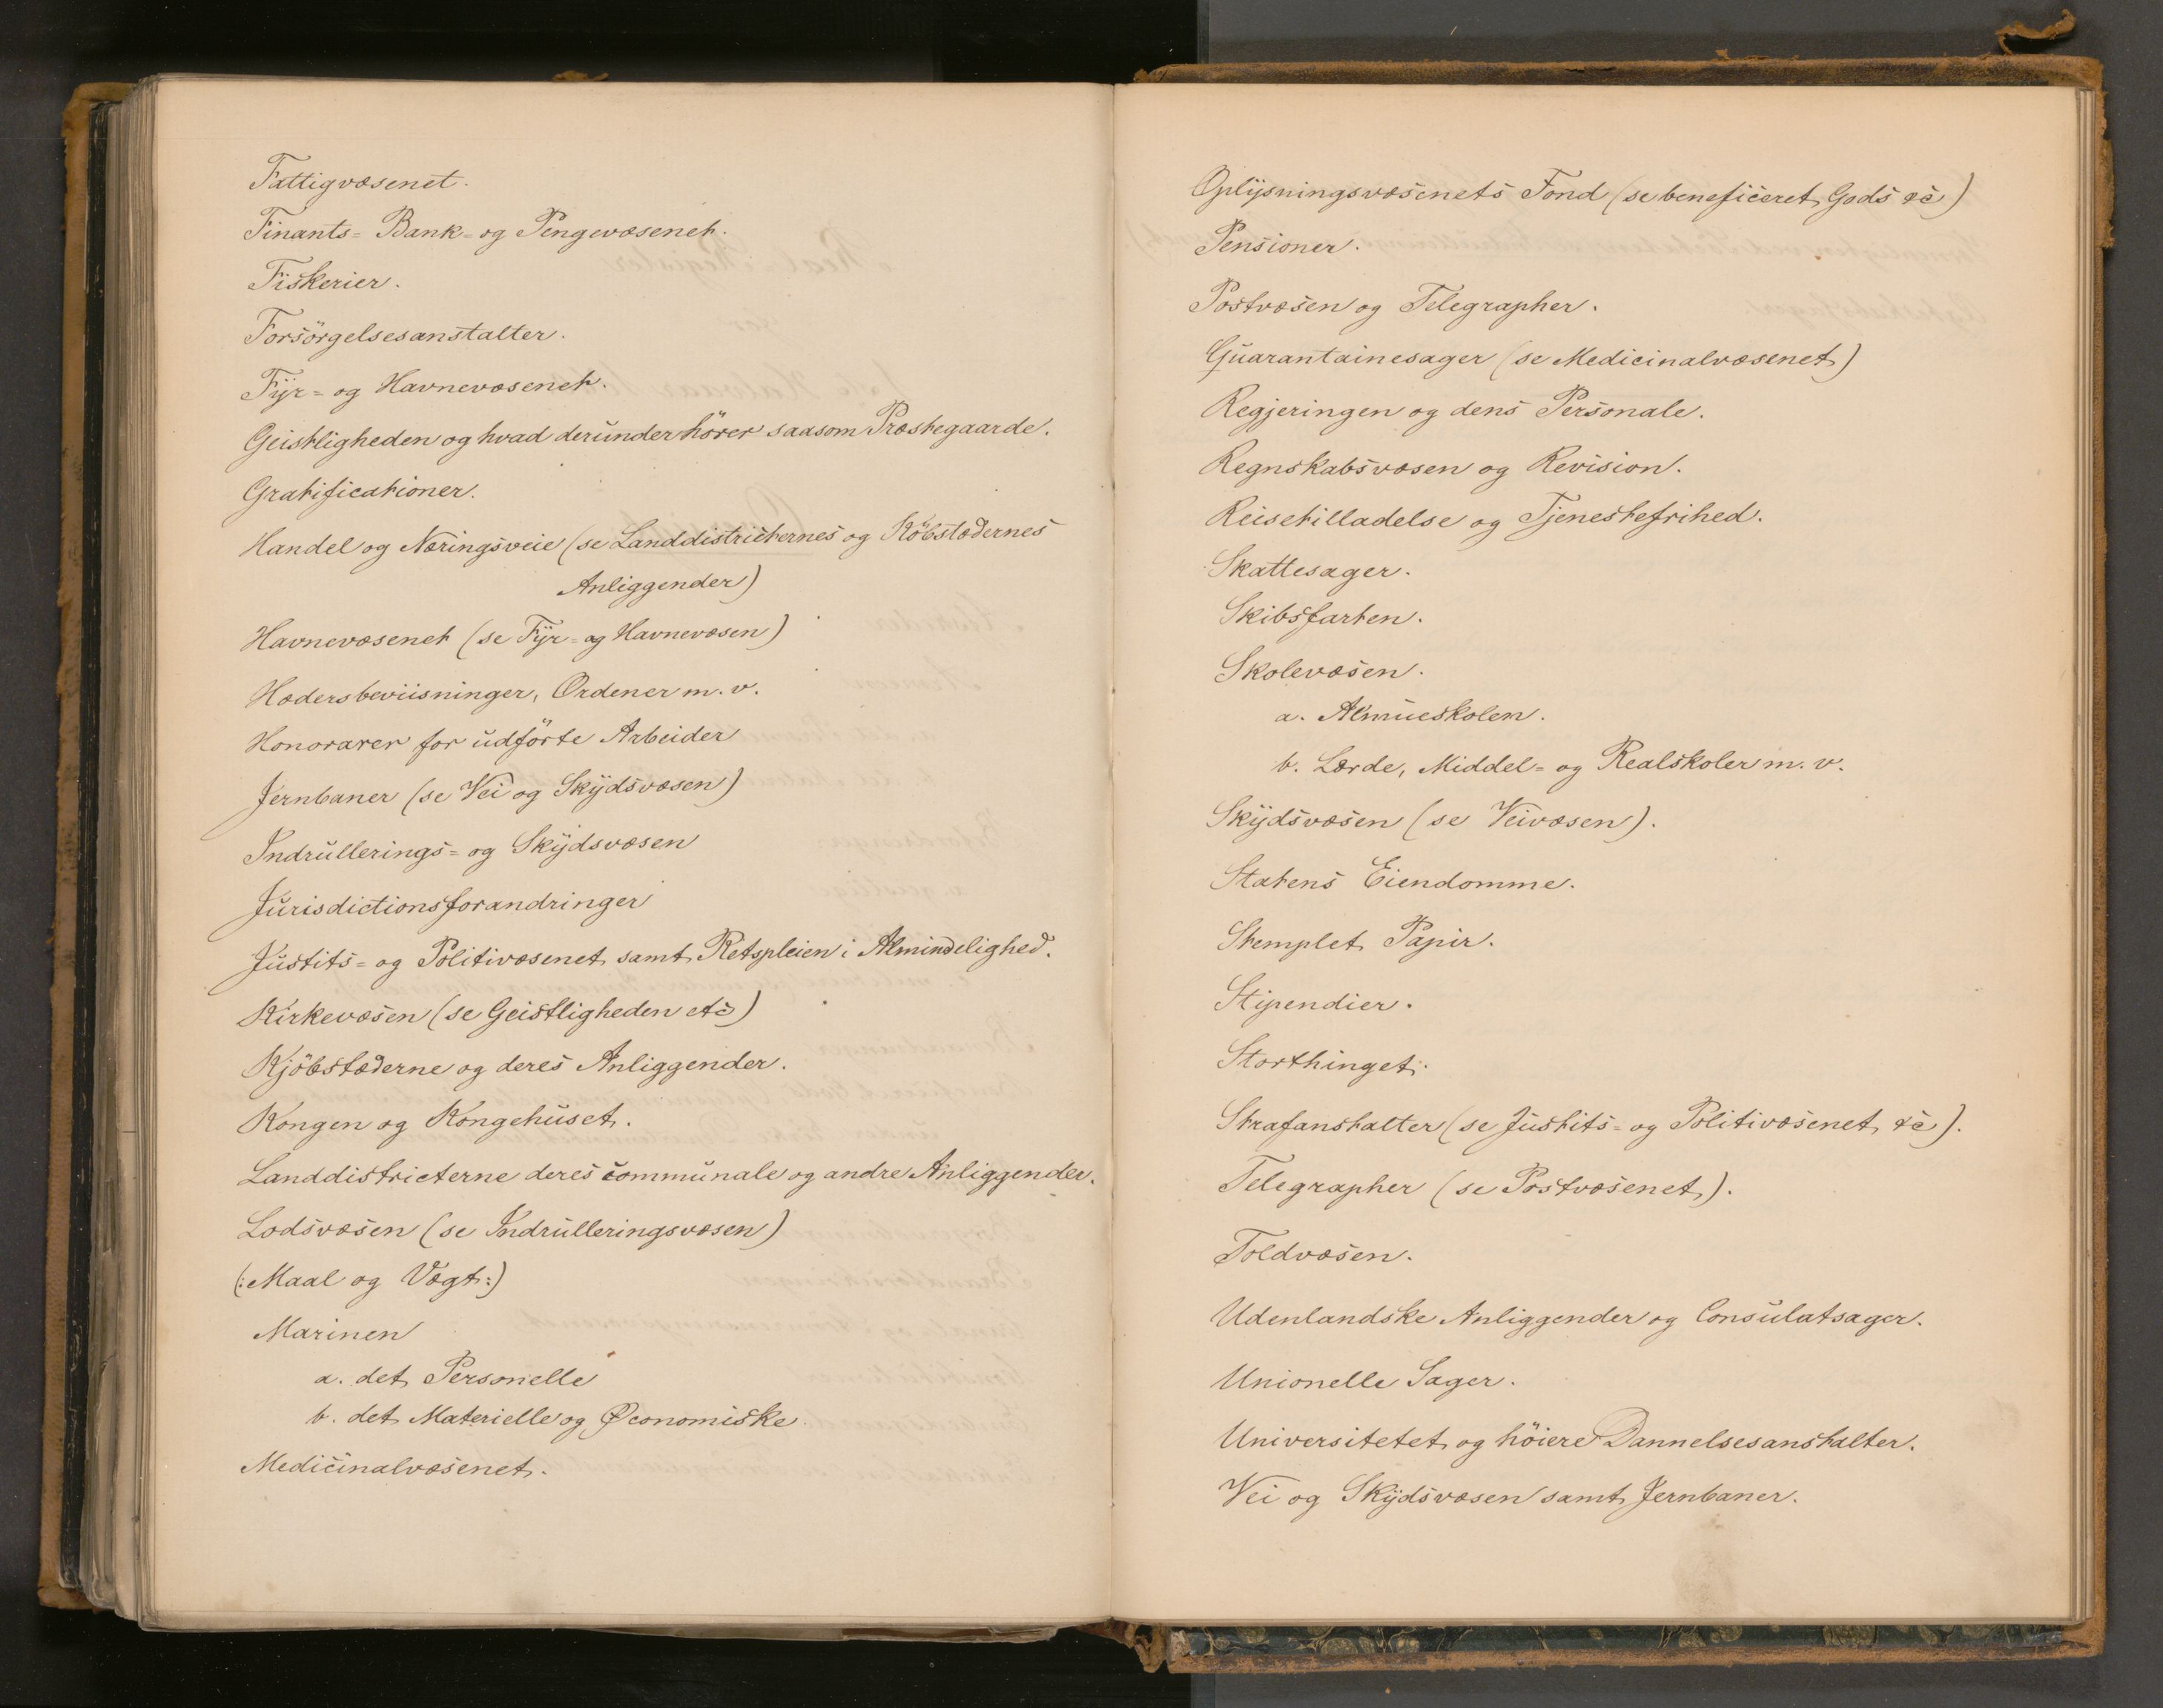 Fattigvæsenet.
Finants- Bank- og Pengevæsenet.
Fiskerier.
Forsörgelsesanstalter.
Fyr- og Havnevæsenet.
Geistligheden og hvad derunder hörer saasom Præstegaarde.
Gratificationer.
Handel og Næringsveie (se Landdistricternes og Köbstædernes
Anliggender)
Havnevæsenet (se Fyr- og Havnevæsen)
Hædersbeviisninger, Ordener m. v.
Honorarer for udförte Arbeider
Jernbaner (se Vei og Skydsvæsen)
Indrullerings- og Skydsvæsen
Jurisdictionsforandringer
Justits- og Politivæsenet samt Retspleien i Almindelighed.
Kirkevæsen (se Geistligheden etc)
Kjöbstæderne og deres Anliggender.
Kongen og Kongehuset.
Landdistricterne deres communale og andre Anliggender.
Lodsvæsen (se Indrulleringsvæsen)
(: Maal og Vægt :)
Marinen
a. det Personelle
b. det Materielle og Øconomiske
Medicinalvæsenet.
Oplysningsvæsenets Fond (se beneficeret Gods &c)
Pensioner.
Postvæsen og Telegrapher.
Quarantainesager (se Medicinalvæsenet)
Regjeringen og dens Personale.
Regnskabsvæsen og Revision.
Reisetilladelse og Tjenestefrihed.
Skattesager.
Skibsfarten.
Skolevæsen.
a. Almueskolen.
b. Lærde, Middel- og Realskoler m. v.
Skydsvæsen (se Veivæsen).
Statens Eiendomme.
Stemplet Papir.
Stipendier.
Storthinget.
Strafanstalter (se Justits- og Politivæsenet &c).
Telegrapher (se Postvæsenet).
Toldvæsen.
Udenlandske Anliggender og Consulatsager.
Unionelle Sager.
Universitetet og höiere Dannelsesanstalter.
Vei og Skydsvæsen samt Jernbaner.